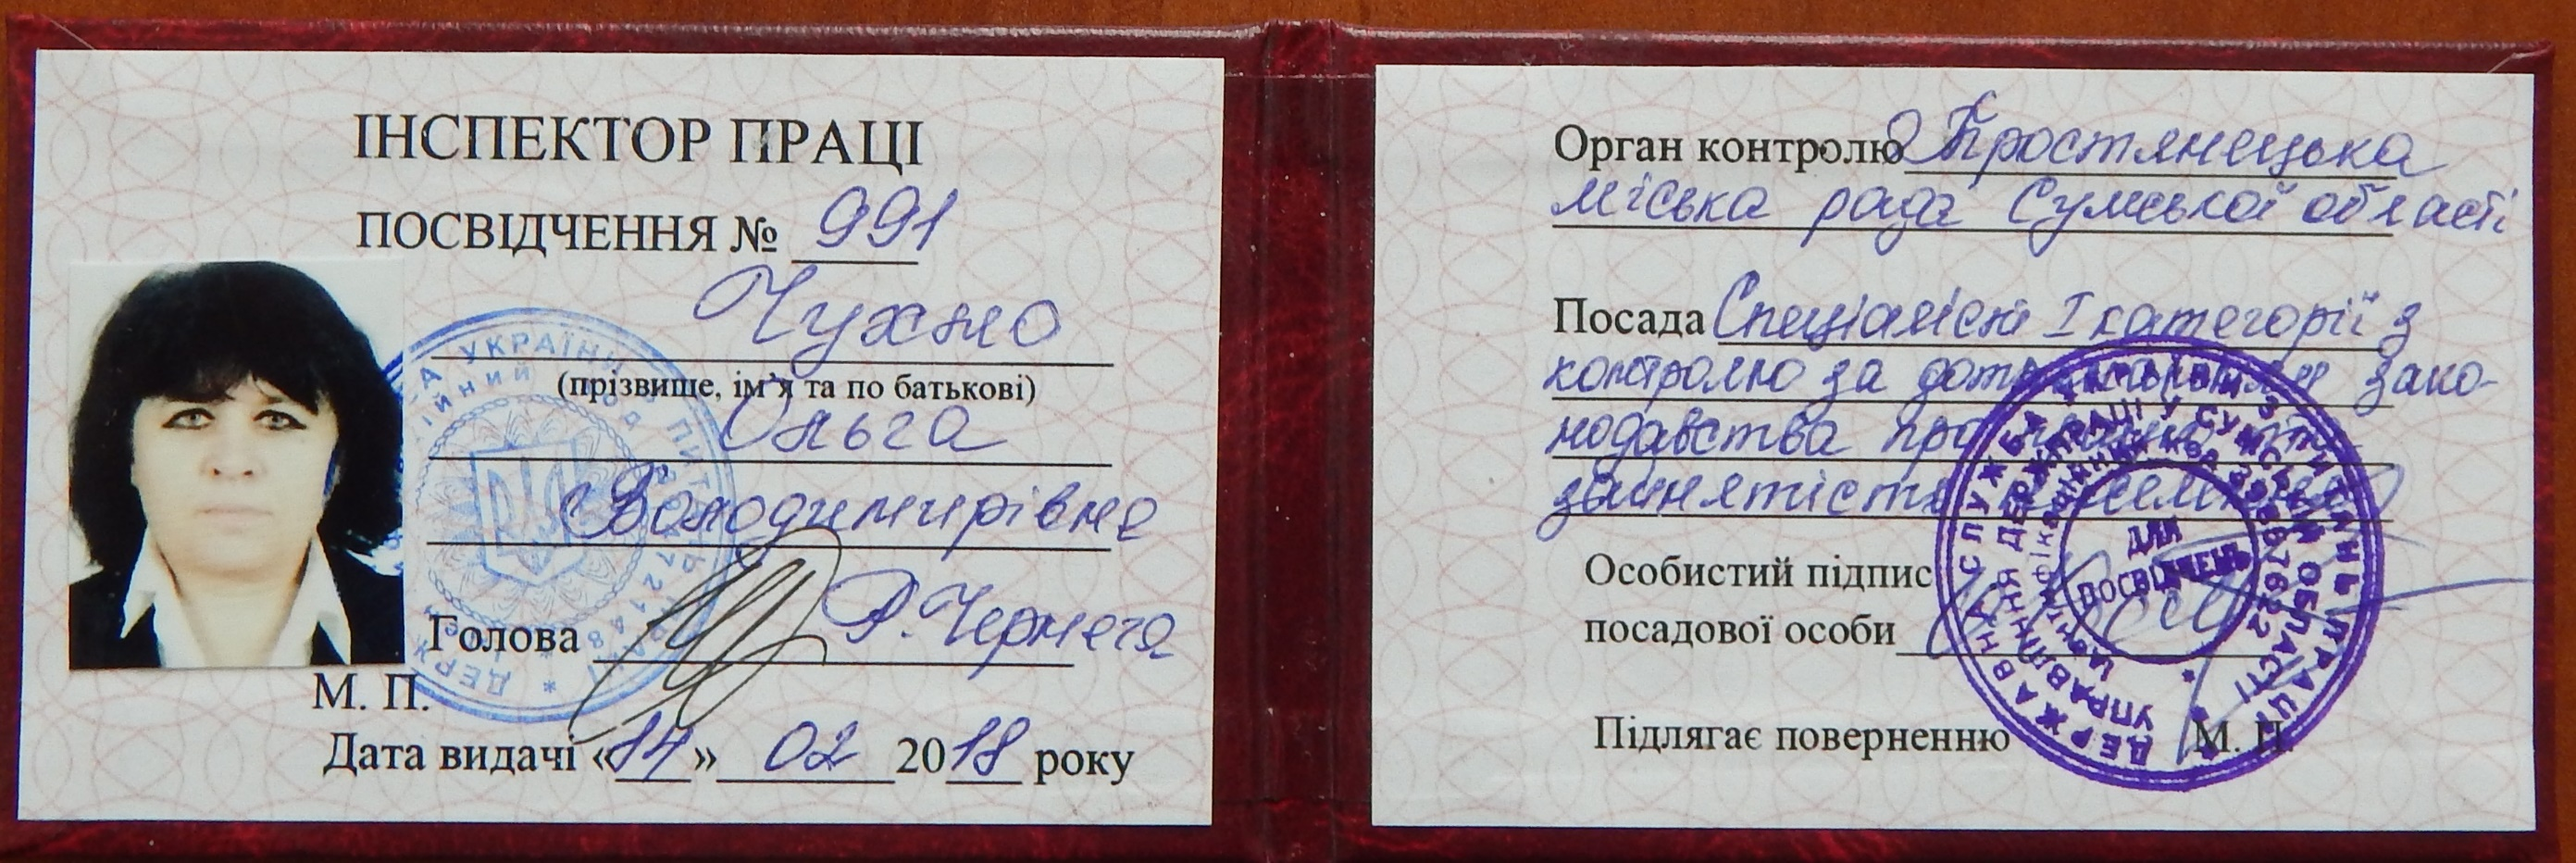 ІНСПЕКТОР ПРАЦІ
ПОСВІДЧЕННЯ № 991
Чухно
(прізвище, ім'я та по батькові)
Ольга
Володимирівна
Голова Р. Чернега
М. П.
Дата видачі «14» 02 2018 року
Орган контролю Тростянецька
міська рада Сумської області
Посада Спеціаліст І категорії з
контролю за дотриманням зако-
нодавства про працю та
зайнятість населення
Особистий підпис
посадової особи
Підлягає поверненню М. П.
ДЕРЖАВНА СЛУЖБА УКРАЇНИ З ПИТАНЬ ПРАЦІ
УПРАВЛІННЯ ДЕРЖПРАЦІ У СУМСЬКІЙ ОБЛАСТІ
ДЛЯ
ПОСВІДЧЕНЬ